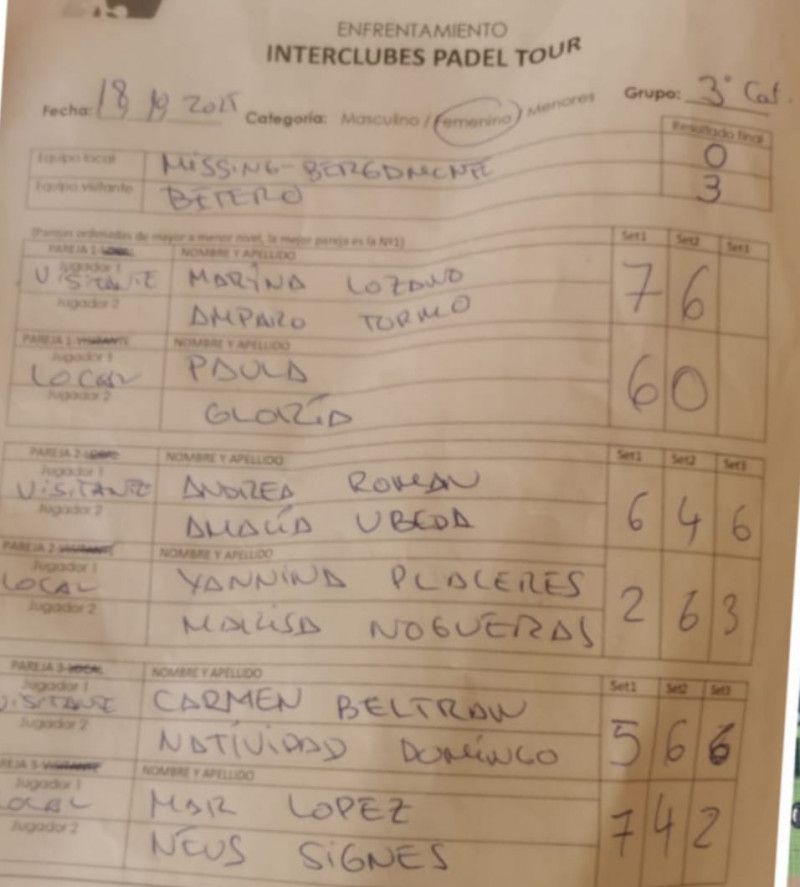 ENFRENTAMIENTO
INTERCLUBES PADEL TOUR
Fecha: 18 Categoria: Masculino / Femenino / Menores Grupo: 3ª Cat.
Resultado final
Equipo local MISSING- 0
Equipo visitante BETERO 3
(Parejas ordenadas de mayor a menor nivel, la mejor pareja es la Nº1)
PAREJA 1 LOCAL NOMBRE Y APELLIDO Set1 Set2 Set3
Jugador 1 VISITANTE MARINA LOZANO 7 6
Jugador 2 AMPARO TORMO
PAREJA 1 VISITANTE NOMBRE Y APELLIDO
Jugador 1 LOCAL PAULA 6 0
Jugador 2 GLORIA
PAREJA 2 LOCAL NOMBRE Y APELLIDO Set1 Set2 Set3
Jugador 1 VISITANTE ANDREA ROMAN 6 4 6
Jugador 2 AMALIA UBEDA
PAREJA 2 VISITANTE NOMBRE Y APELLIDO
Jugador 1 LOCAL YANNINA PLACERES 2 6 3
Jugador 2 MARISA NOGUERAS
PAREJA 3 LOCAL NOMBRE Y APELLIDO Set1 Set2 Set3
Jugador 1 VISITANTE CARMEN BELTRAN 5 6 6
Jugador 2 NATIVIDAD DOMINGO
PAREJA 3 VISITANTE NOMBRE Y APELLIDO
Jugador 1 LOCAL MAR LOPEZ 7 4 2
Jugador 2 NEUS SIGNES